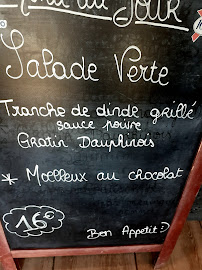 Menu du Jour
Salade Verte
Tranche de dinde grillé
sauce poivre
Gratin Dauphinois
* Moelleux au chocolat
16€
Bon Appetit :)